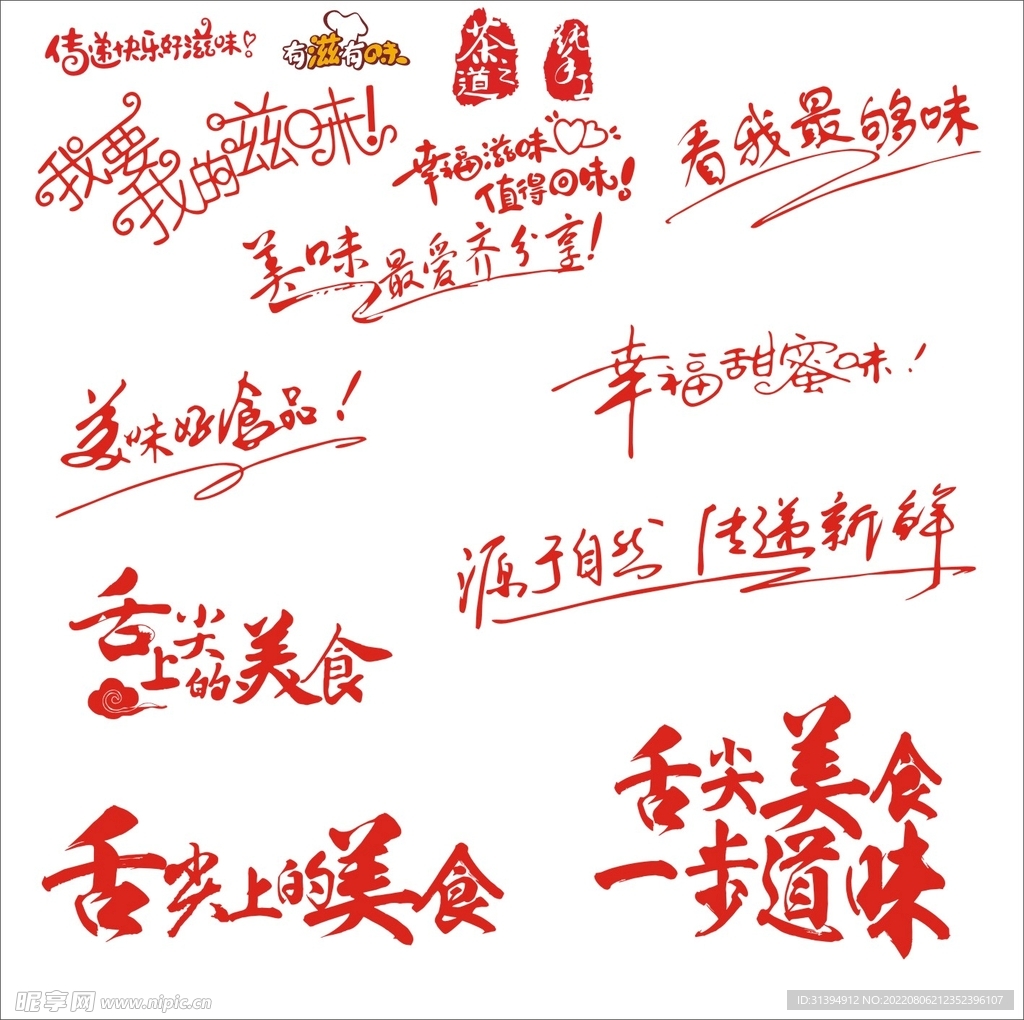 传递快乐好滋味!
有滋有味
茶之道
纯手工
我要我的滋味!
幸福滋味
值得回味!
看我最够味
美味最爱齐分享!
幸福甜蜜味!
美味好食品!
源于自然 传递新鲜
舌尖上的美食
舌尖美食
一步道味
舌尖上的美食
昵享网 www.nipic.cn
ID:31394912 NO:20220806212352396107